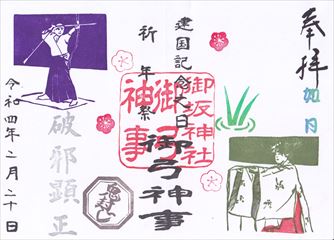 奉拝
如月
建国記念之日
祈年祭
御坂神社
御弓神事
御弓神事
破邪顕正
令和四年二月二十日